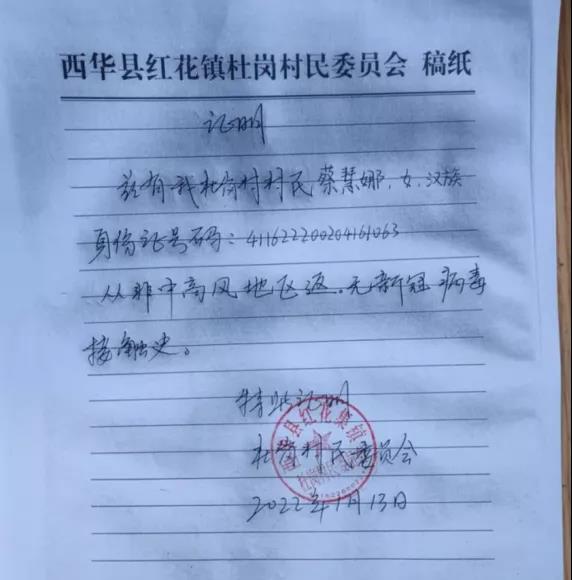 西华县红花镇杜岗村民委员会 稿纸
证明
兹有我杜岗村村民蔡慧娜,女,汉族
身份证号码:411622200204161063
从非中高风地区返。无新冠病毒
接触史。
特此证明
杜岗村民委员会
2022年1月13日
县红花集镇